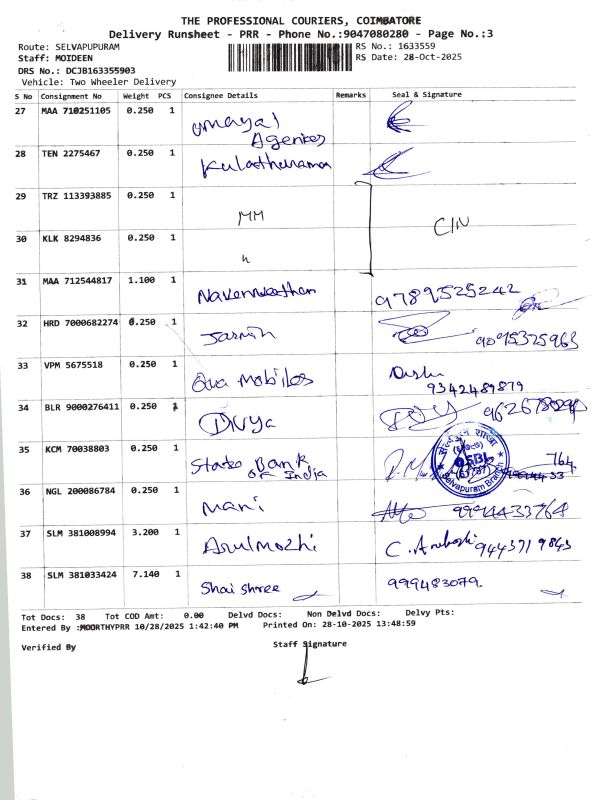 THE PROFESSIONAL COURIERS, COIMBATORE
Delivery Runsheet - PRR - Phone No.:9047080280 - Page No.:3
Route: SELVAPUPURAM
RS No.: 1633559
Staff: MOIDEEN
RS Date: 28-Oct-2025
DRS No.: DCJB163355903
Vehicle: Two Wheeler Delivery
S No Consignment No Weight PCS Consignee Details Remarks Seal & Signature
27 MAA 710251105 0.250 1
Agencies
28 TEN 2275467 0.250 1
29 TRZ 113393885 0.250 1 MM
30 KLK 8294836 0.250 1 "
31 MAA 712544817 1.100 1 9789525242
32 HRD 7000682274 0.250 1 Jasmin 9095325963
33 VPM 5675518 0.250 1 Mobiles
9342489879
34 BLR 9000276411 0.250 1 Divya
35 KCM 70038803 0.250 1 State Bank 764
of India
SBI
Selvapuram Branch
36 NGL 200086784 0.250 1 Mani 9994433764
37 SLM 381008994 3.200 1 Arulmozhi C. 9443719843
38 SLM 381033424 7.140 1 Shai shree 999483079.
Tot Docs: 38 Tot COD Amt: 0.00 Delvd Docs: Non Delvd Docs: Delvy Pts:
Entered By :MOORTHYPRR 10/28/2025 1:42:40 PM Printed On: 28-10-2025 13:48:59
Verified By Staff Signature